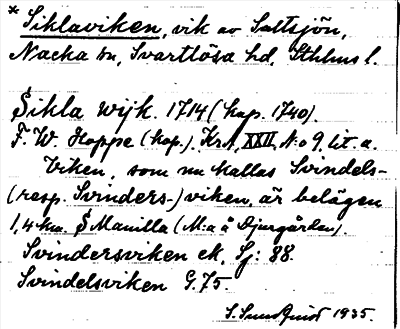 * Siklaviken, vik av Saltsjön,
Nacka sn, Svartlösa hd, Sthlms l.
Sikla wijk. 1714 (kop. 1740).
F. W. Hoppe (kop.). Kr. A. XXII N:o 9 lit. a.
Viken, som nu kallas Svindels-
(resp. Svinders-) viken, är belägen
1,4 km. S Manilla (M:a å Djurgården).
Svindersviken ek. Sj: 88.
Svindelsviken G. 75.
S. Sundquist 1935.